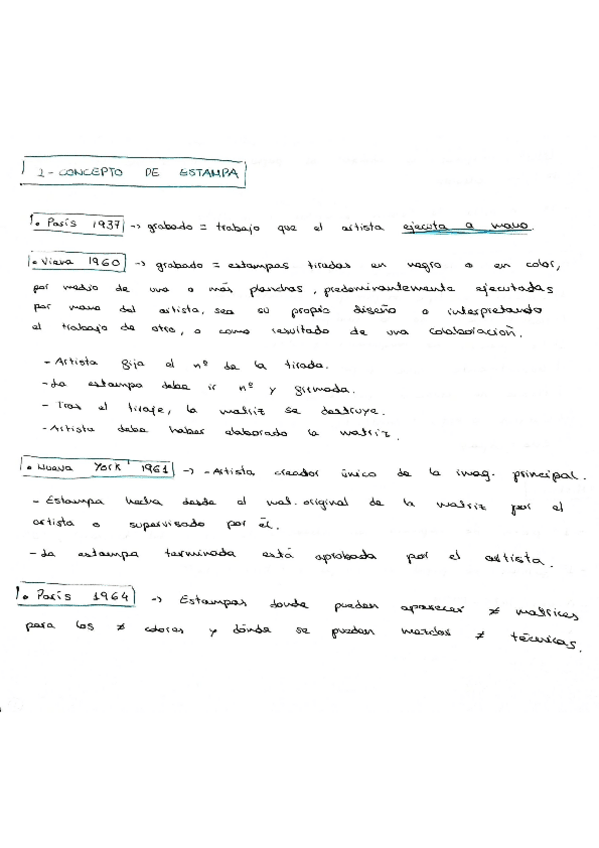 2-CONCEPTO DE ESTAMPA
• París 1937 -> grabado = trabajo que el artista ejecuta a mano.
• Viena 1960 -> grabado = estampas tiradas en negro o en color,
por medio de una o más planchas, predominantemente ejecutadas
por mano del artista, sea su propio diseño o interpretando
el trabajo de otro, o como resultado de una colaboración.
- Artista fija el nº de la tirada.
- La estampa debe ir nº y firmada.
- Tras el tiraje, la matriz se destruye.
- Artista debe haber elaborado la matriz.
• Nueva York 1961 -> - Artista creador único de la imag. principal.
- Estampa hecha desde el mat. original de la matriz por el
artista o supervisado por él.
- La estampa terminada está aprobada por el artista.
• París 1964 -> Estampas donde pueden aparecer ≠ matrices
para los ≠ colores y dónde se puedan mezclar ≠ técnicas.